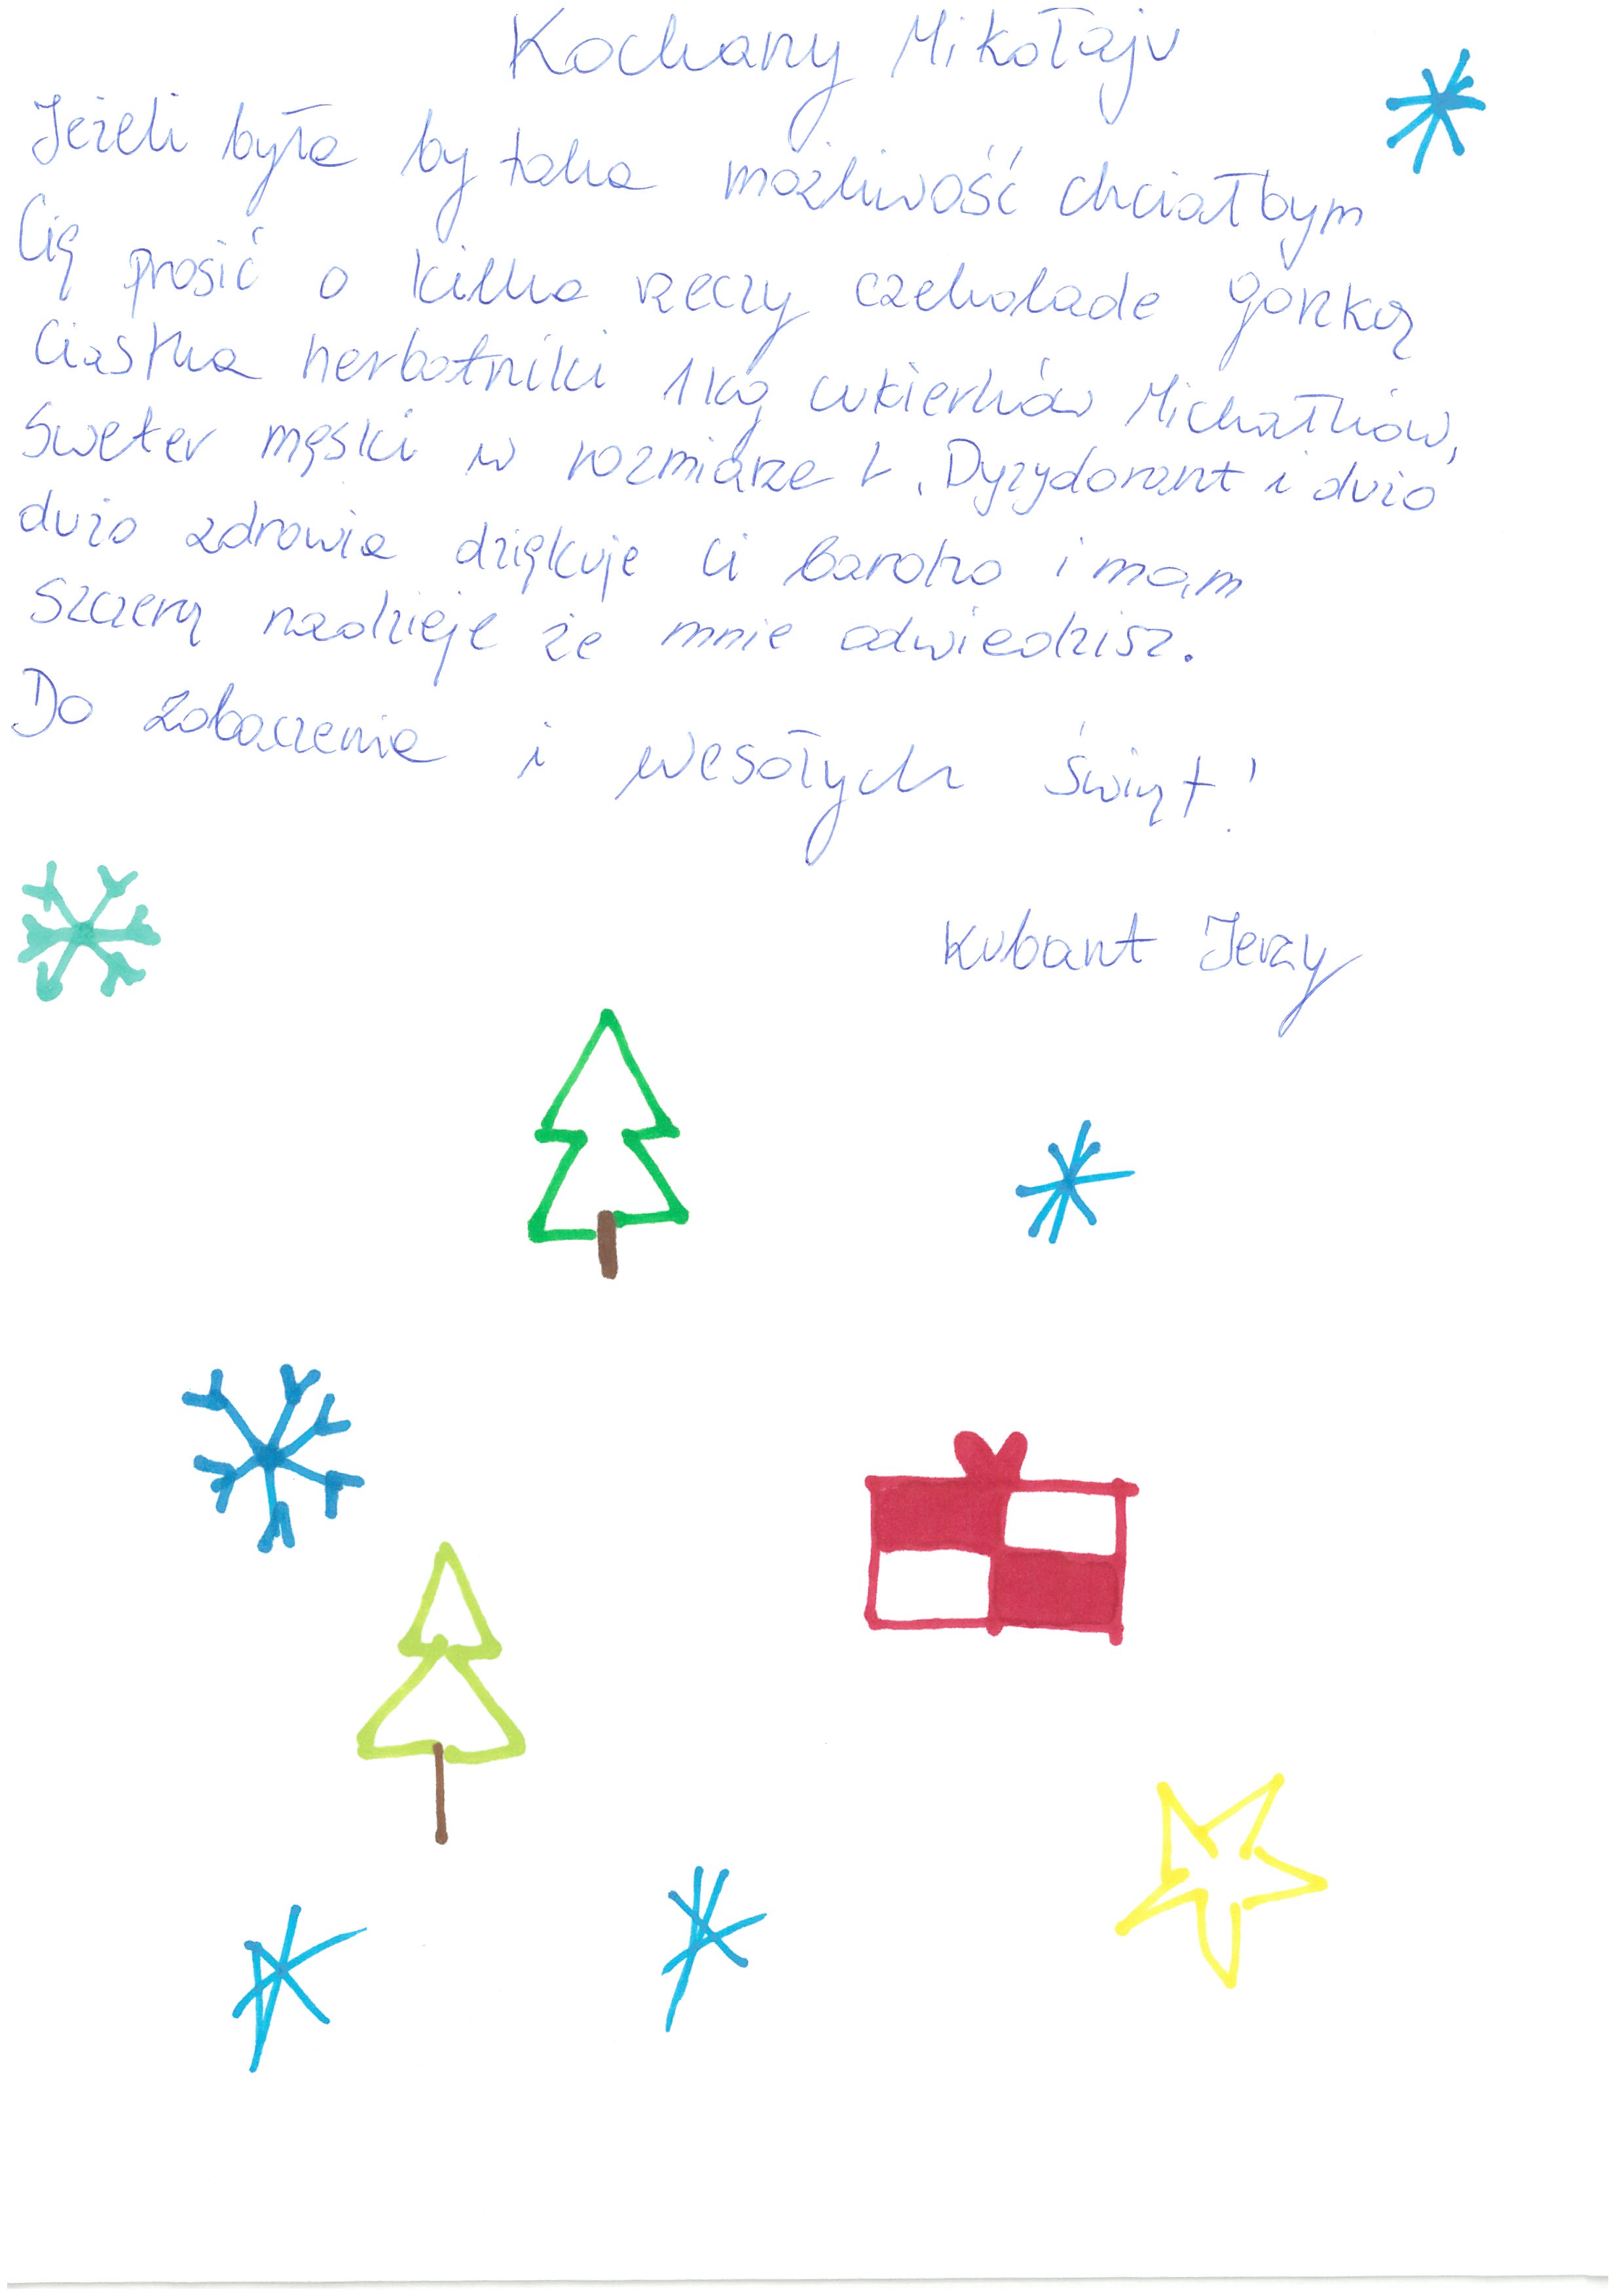 Kochany Mikołaju
Jeżeli była by taka możliwość chciałbym
Cię prosić o kilka rzeczy czekolade gorzką
Ciastka herbatniki 1 kg cukierków Michałków,
Sweter męski w rozmiarze L, Dyzydorant i dużo
dużo zdrowia dziękuje Ci bardzo i mam
Szczerą nadzieje że mnie odwiedzisz.
Do Zobaczenia i wesołych świąt!
Kubant Jerzy